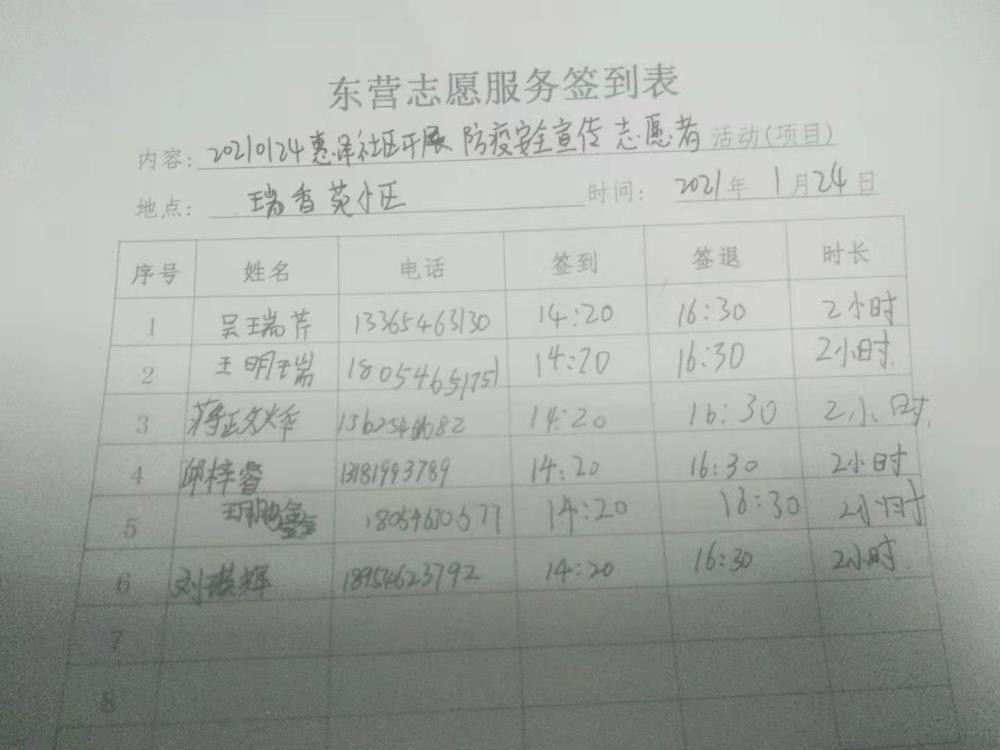 东营志愿服务签到表
内容: 20210124惠泽社区开展防疫安全宣传志愿者活动(项目)
地点: 瑞香苑小区 时间: 2021年1月24日
序号 姓名 电话 签到 签退 时长
1 吴瑞芹 13365463130 14:20 16:30 2小时
2 王明瑞 18054651751 14:20 16:30 2小时.
3 14:20 16:30 2小时.
4 邱梓睿 13181993789 14:20 16:30 2小时
5 14:20 16:30 2小时
6 刘祺辉 18954623792 14:20 16:30 2小时.
7
8